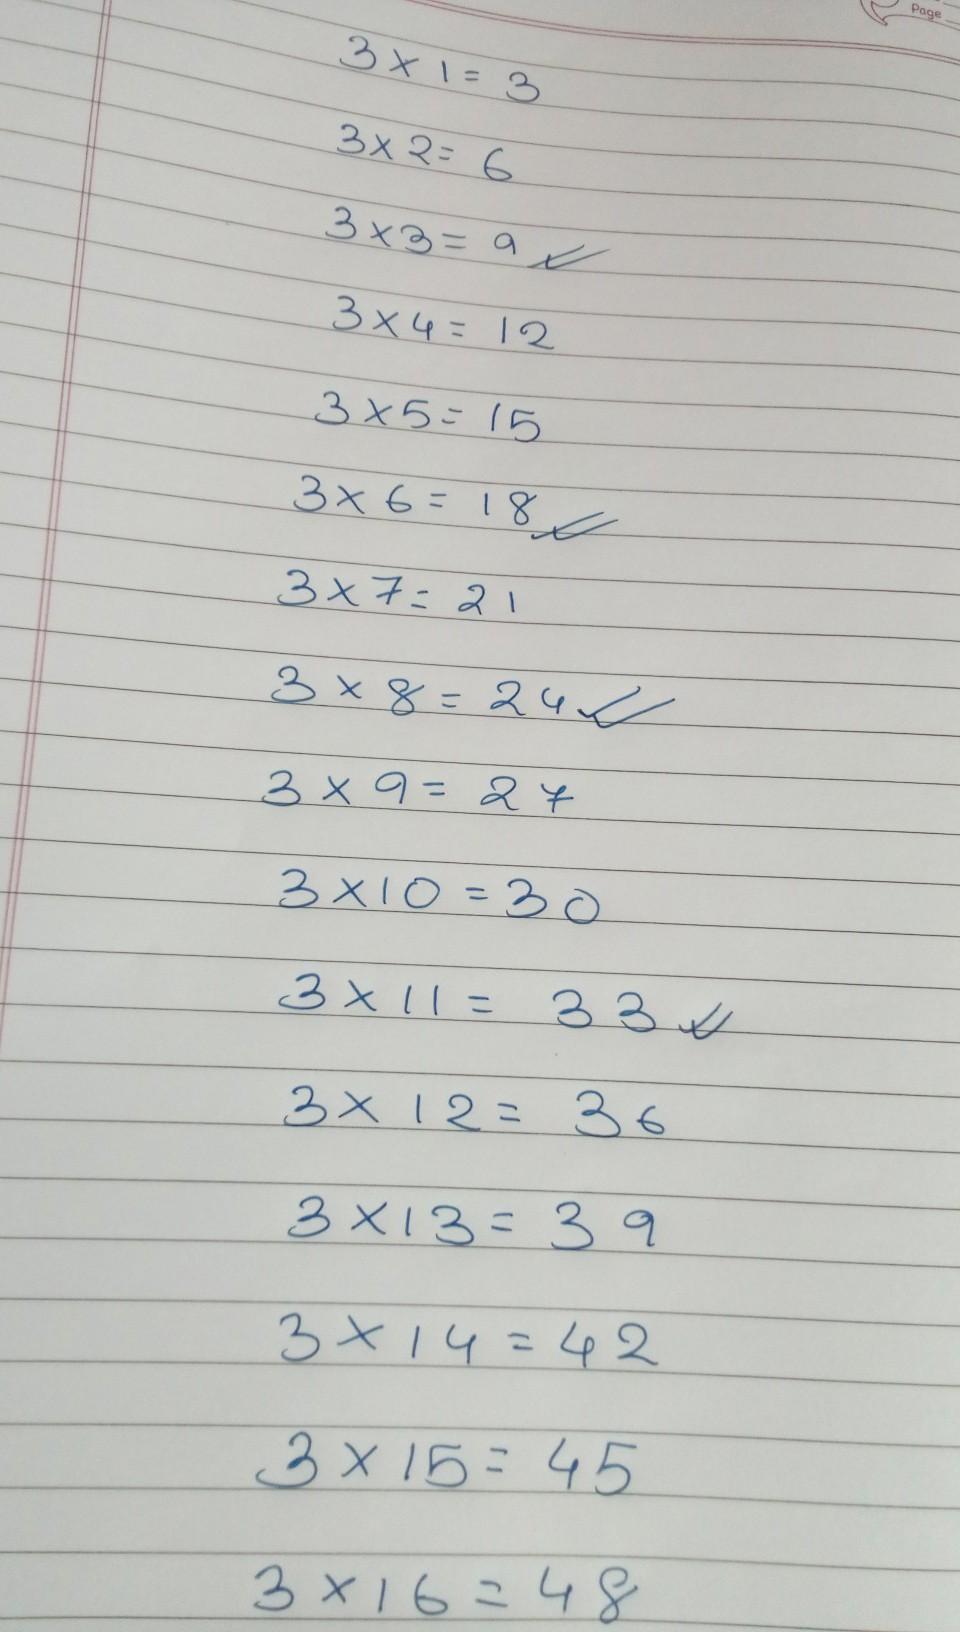 Page
3 × 1 = 3
3 × 2 = 6
3 × 3 = 9 ✓
3 × 4 = 12
3 × 5 = 15
3 × 6 = 18 ✓
3 × 7 = 21
3 × 8 = 24 ✓
3 × 9 = 27
3 × 10 = 30
3 × 11 = 33 ✓
3 × 12 = 36
3 × 13 = 39
3 × 14 = 42
3 × 15 = 45
3 × 16 = 48